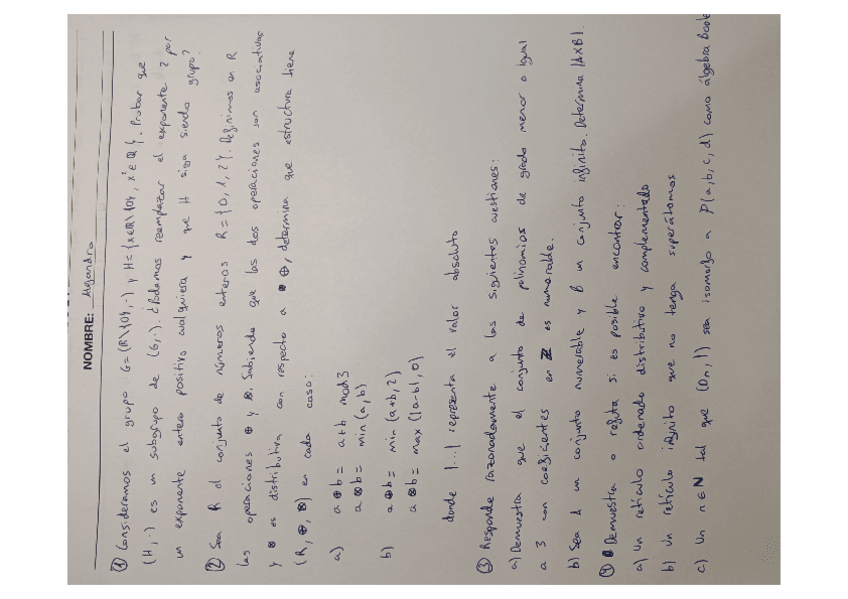 NOMBRE: Alejandro
① Consideramos el grupo G=(ℝ\{0},·) y H={x∈ℝ\{0}, x²∈ℚ}. Probar que
(H,·) es un subgrupo de (G,·). ¿Podemos reemplazar el exponente 2 por
un exponente entero positivo cualquiera y que H siga siendo grupo?
② Sea R el conjunto de números enteros R={0,1,2}. Definimos en R
las operaciones ⊕ y ⊗. Sabiendo que las dos operaciones son asociativas
y ⊗ es distributiva con respecto a ⊕, determina que estructura tiene
(R,⊕,⊗) en cada caso:
a) a⊕b = a+b mod3
a⊗b = min(a,b)
b) a⊕b = min(a+b,2)
a⊗b = max(|a-b|,0)
donde |...| representa el valor absoluto
③ Responde razonadamente a las siguientes cuestiones:
a) Demuestra que el conjunto de polinomios de grado menor o igual
a 3 con coeficientes en ℤ es numerable.
b) Sea A un conjunto numerable y B un conjunto infinito. Determina |A×B|.
④ Demuestra o refuta si es posible encontrar:
a) Un retículo ordenado distributivo y complementado
b) Un retículo infinito que no tenga superátomos
c) Un n∈ℕ tal que (Dn,|) sea isomorfo a P(a,b,c,d) como álgebra Boole